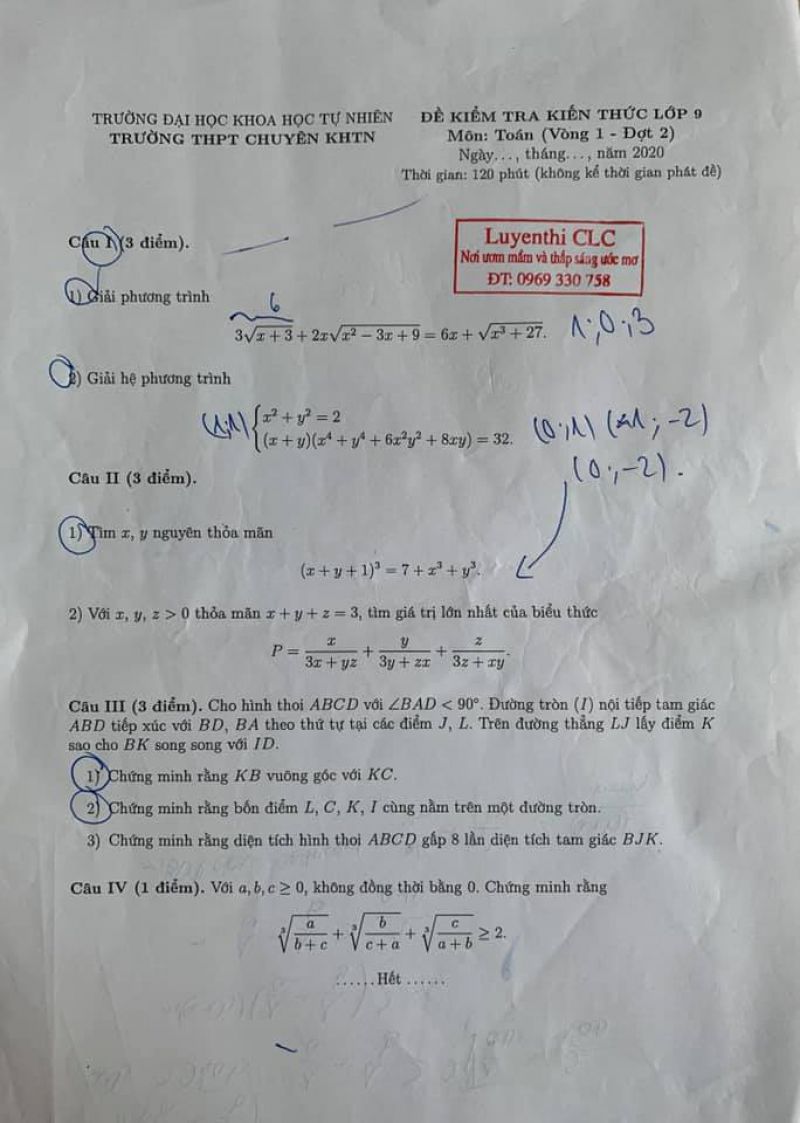 TRƯỜNG ĐẠI HỌC KHOA HỌC TỰ NHIÊN
TRƯỜNG THPT CHUYÊN KHTN
ĐỀ KIỂM TRA KIẾN THỨC LỚP 9
Môn: Toán (Vòng 1 - Đợt 2)
Ngày..., tháng..., năm 2020
Thời gian: 120 phút (không kể thời gian phát đề)
Luyenthi CLC
Nơi ươm mầm và thắp sáng ước mơ
ĐT: 0969 330 758
Câu I (3 điểm).
1) Giải phương trình
6
3√(x + 3) + 2x√(x² − 3x + 9) = 6x + √(x³ + 27). 1; 0; 3
2) Giải hệ phương trình
(1;1) { x² + y² = 2
(x + y)(x⁴ + y⁴ + 6x²y² + 8xy) = 32. (0;1) ( ; -2)
(0; -2).
Câu II (3 điểm).
1) Tìm x, y nguyên thỏa mãn
(x + y + 1)³ = 7 + x³ + y³.
2) Với x, y, z > 0 thỏa mãn x + y + z = 3, tìm giá trị lớn nhất của biểu thức
P = x/(3x + yz) + y/(3y + zx) + z/(3z + xy).
Câu III (3 điểm). Cho hình thoi ABCD với ∠BAD < 90°. Đường tròn (I) nội tiếp tam giác
ABD tiếp xúc với BD, BA theo thứ tự tại các điểm J, L. Trên đường thẳng LJ lấy điểm K
sao cho BK song song với ID.
1) Chứng minh rằng KB vuông góc với KC.
2) Chứng minh rằng bốn điểm L, C, K, I cùng nằm trên một đường tròn.
3) Chứng minh rằng diện tích hình thoi ABCD gấp 8 lần diện tích tam giác BJK.
Câu IV (1 điểm). Với a, b, c ≥ 0, không đồng thời bằng 0. Chứng minh rằng
∛(a/(b + c)) + ∛(b/(c + a)) + ∛(c/(a + b)) ≥ 2.
......Hết ......